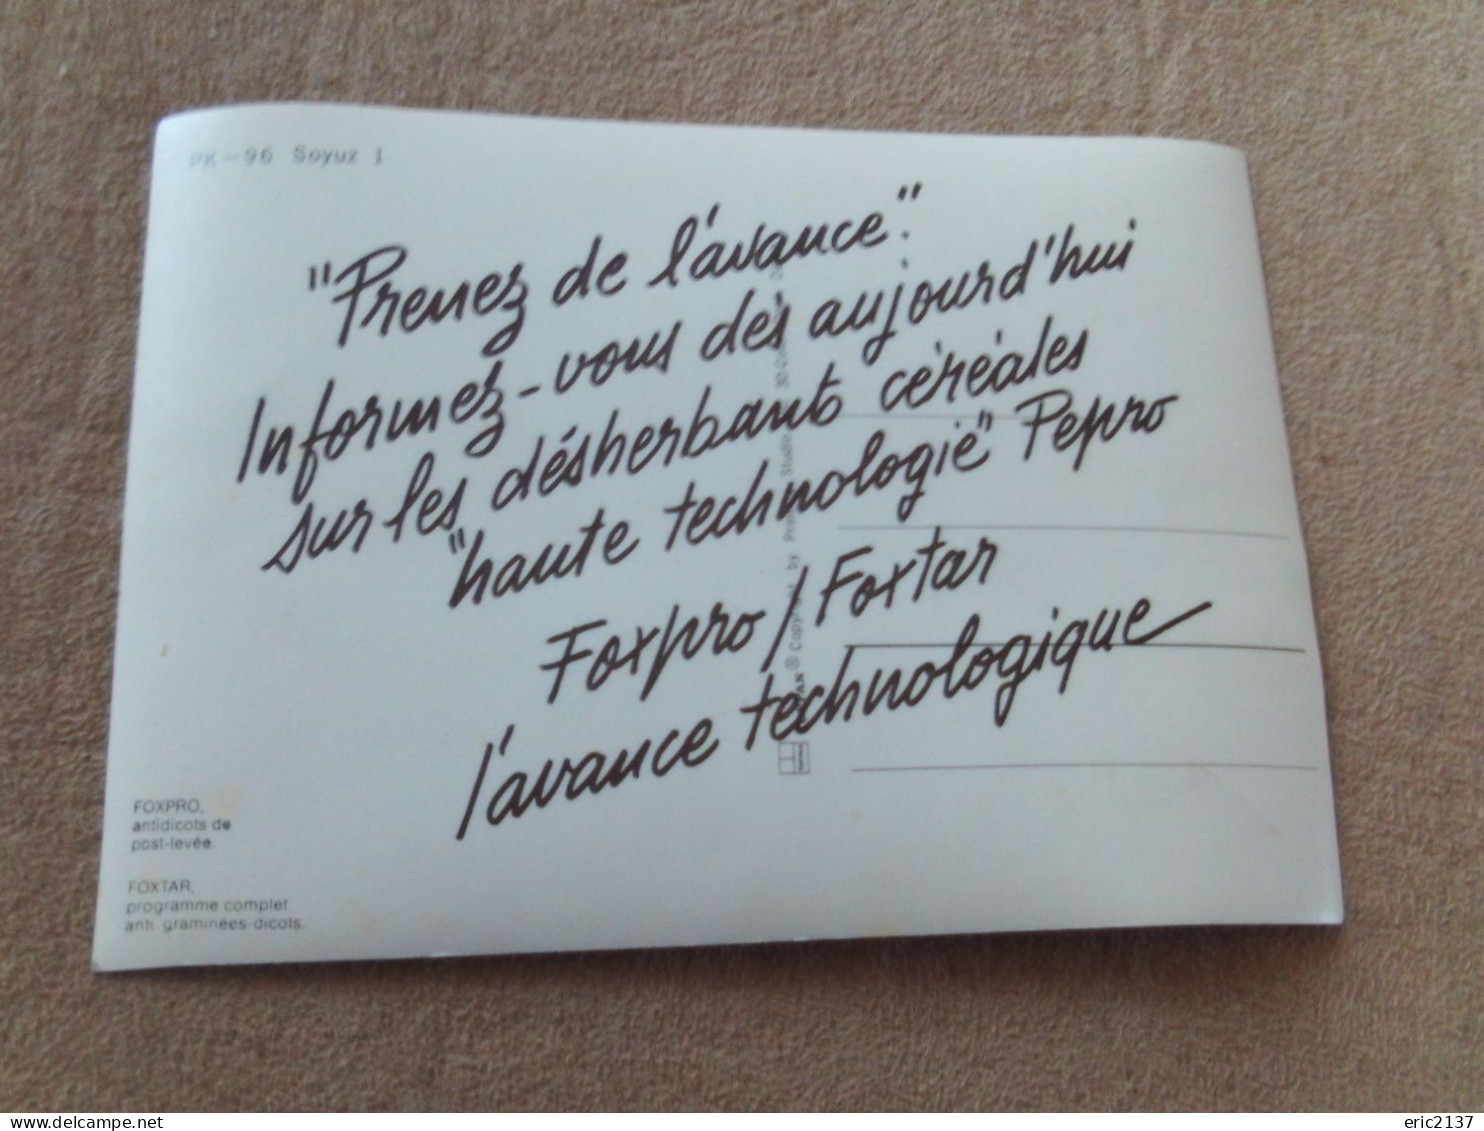 PK-96 Soyuz 1
"Prenez de l'avance".
Informez-vous dès aujourd'hui
sur les désherbants céréales
"haute technologie" Pepro
Foxpro/Foxtar
l'avance technologique
FOXPRO,
antidicots de
post-levée.
FOXTAR,
programme complet
anti graminées-dicots.
by
Studio
eric2137